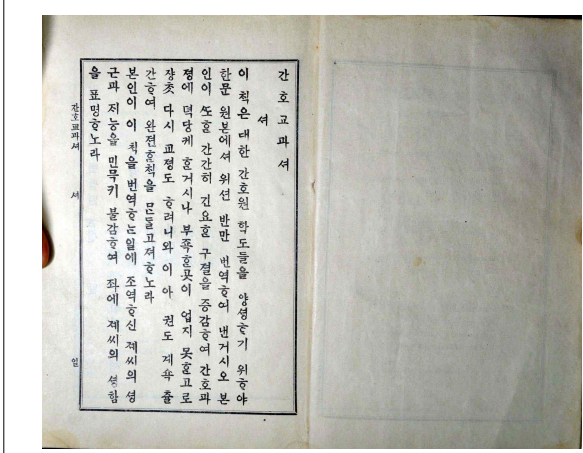 간호교과셔
셔
이 책은 대한 간호원 학도들을 양셩ᄒᆞ기 위ᄒᆞ야
한문 원본에셔 위션 반만 번역ᄒᆞ여 낸거시오 본
인이 ᄯᅩᄒᆞᆫ 간간히 긴요ᄒᆞᆫ 구졀을 증감ᄒᆞ여 간호과
졍에 덕당케 ᄒᆞᆫ거시나 부죡ᄒᆞᆫ곳이 업지 못ᄒᆞᆫ고로
쟝ᄎᆞᆺ 다시 교졍도 ᄒᆞ려니와 이 아 권도 계쇽 츌
간ᄒᆞ여 완젼ᄒᆞᆫ책을 ᄆᆞᆫ들고져ᄒᆞ노라
본인이 이 책을 번역ᄒᆞᄂᆞᆫ일에 조역ᄒᆞ신 졔씨의 셩
근과 저능을 민무키 불감ᄒᆞ여 좌에 졔씨의 셩함
을 표명ᄒᆞ노라
간호교과셔 셔 일